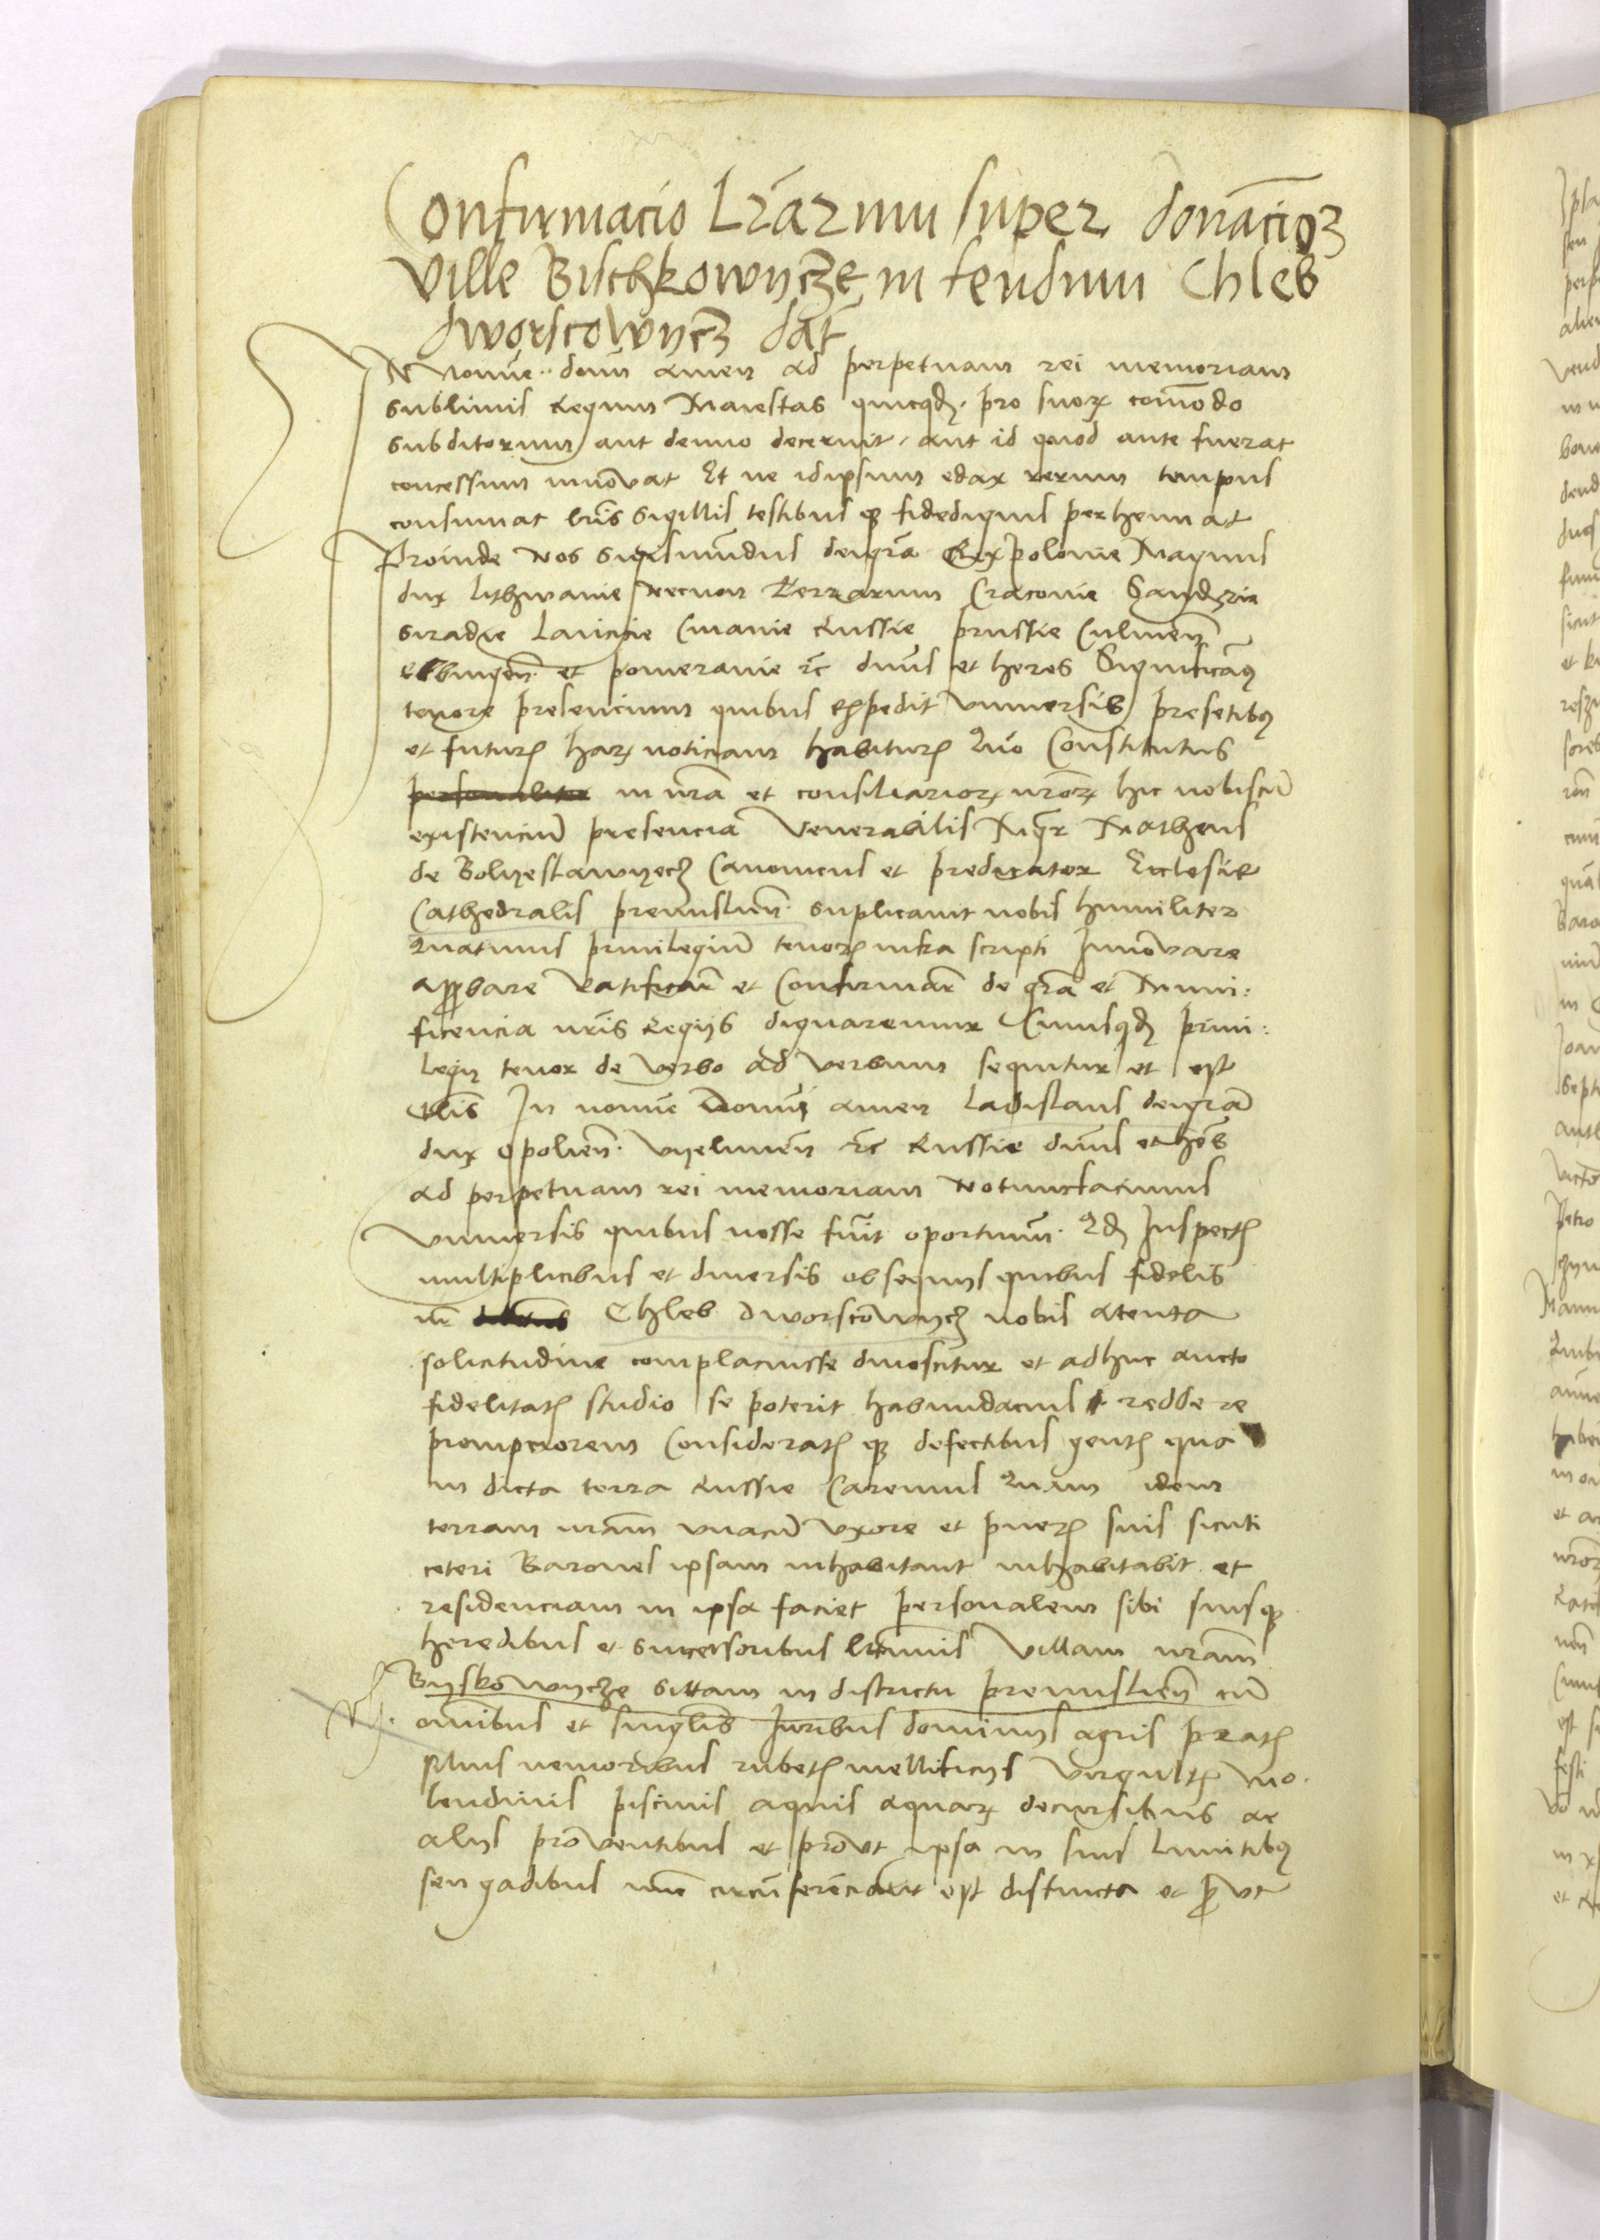 Confirmacio Lr̄arum super donac̄iōȝ
ville Bischkowycȝe in feudum Chleb
dworscowycȝ dat̄
IN Nomīe domī amen ad perpetuam rei memoriam
sublimis Regum Maiestas quicqđ pro suoꝝ com̄odo
subditorum aut denuo decernit, aut id quod ante fuerat
concessum innōvat Et ne idipsum edax rerum tempus
consumat lrīs sigillis testibus qꝫ fidedignis perhennat
Proinde Nos sigismūndus deigrā Rex polonie Magnus
dux lithwanie Necnon Terrarum Cracovie Sandȝrie
siradie Lancicie Cuiavie Russie prussie Culmen̄
elbingen̄ et pomeranie ꝛc̄ dn̄us et heres Significām9
tenore presencium quibus expedit vniversis presetib9
et futurꝭ harꝝ noticiam habiturꝭ Quō Constitutus
personaliter in nrā et consiliarioꝝ nrōꝝ hic nobiscū
existenciū presencia Venerabilis Mgr̄ Matheus
de Bolyeslawyecȝ Canonicus et predicator Ecclesie
Cathedralis premislien̄ suplicavit nobis humiliter
Quatinus privilegiū tenorꝭ infra scripti Innōvare
apꝓbare Ratificar̄ et Confirmar̄ de grā et Muni:
ficencia nrīs Regijs dignaremur Cuiusqđ privi:
legij tenor de verbo ad verbum sequitur et est
tlīs In nomīe Domī amen ladislaus deigrā
dux opolien̄ vyelunen̄ ꝛc̄ Russie dn̄us et hēs
ad perpetuam rei memoriam Notumfacimus
vniversis quibus nosse fuīt oportunū Qđ Inspectꝭ
multiplicibus et diversis obsequijs quibus fidelis
nr̄ Chleb Dworscōwycȝ nobis atenta
solicitudine complacuisse dinoscitur et adhuc aucto
fidelitatꝭ studio se poterit habundacius reddere
prompciorem Consideratꝭ qꝫ defectibus gentꝭ qua
in dicta terra Russie Caremus Quum idem
terram nram̄ vnacū vxore et puerꝭ suis sicuti
ceteri Barones ipsam inhabitant inhabitabit et
residenciam in ipsa faciet personalem sibi suisqꝫ
heredibus et successoribus ltīmis villam nram̄
Byskōwycȝe sittam in districtu premislien̄ cū
om̄ibus et singlīs Iuribus dominijs agris pratꝭ
silvis nemoribus rubetꝭ mellificijs virgultꝭ mo
lendinis piscinis aquis aquaꝝ decursibus ac
alijs prōventibus et prōut ipsa in suis limitib9
seu gadibus nūc circūferēcialīt est distincta et ꝓvt